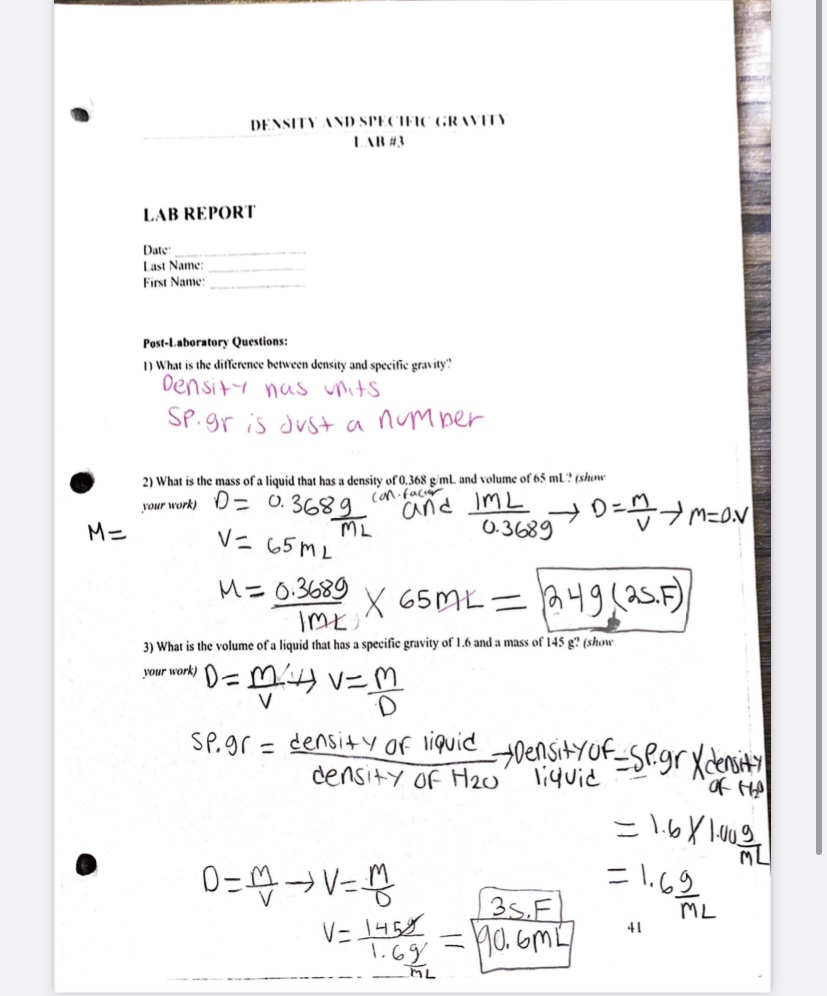 DENSITY AND SPECIFIC GRAVITY
LAB #3
LAB REPORT
Date:
Last Name:
First Name:
Post-Laboratory Questions:
1) What is the difference between density and specific gravity?
Density has units
SP.gr is just a number
2) What is the mass of a liquid that has a density of 0.368 g/mL and volume of 65 mL? (show
your work) D= 0.368g/mL con.factor and 1mL/0.368g → D=m/v → M=D.V
M=
V= 65mL
M= 0.368g/1mL X 65mL = 24g (2S.F)
3) What is the volume of a liquid that has a specific gravity of 1.6 and a mass of 145 g? (show
your work) D=m/v → V=m/D
SP.gr = density of liquid/density of H2O → Density of liquid = SP.gr X density of H2O
= 1.6 X 1.00g/mL
= 1.6g/mL
D=m/v → V=m/D
3S.F
V= 145g/1.6g/mL = 90.6mL
41